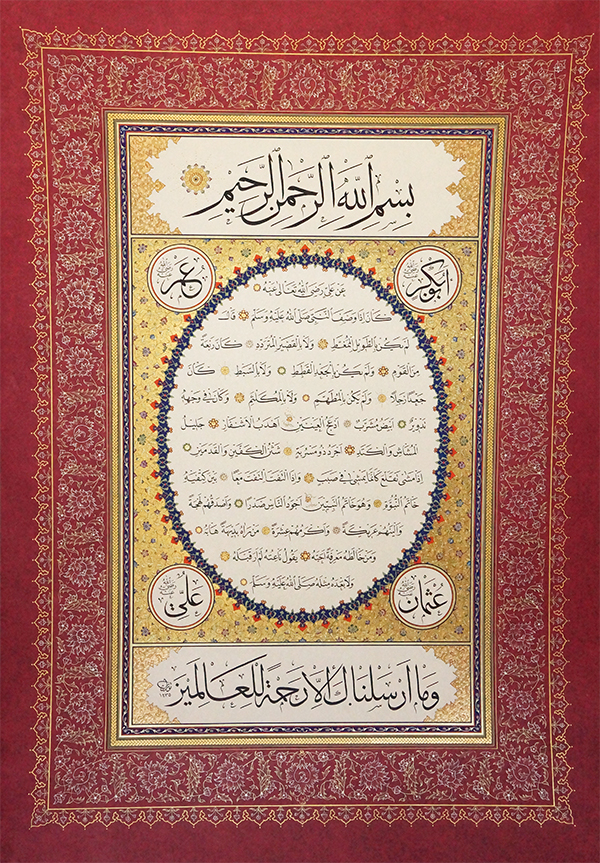 بِسْمِ اللهِ الرَّحْمٰنِ الرَّحِيمِ
ابوبكر
عمر
عن علي رضي الله تعالى عنه
كان اذا وصف النبي صلى الله عليه وسلم قال
لم يكن بالطويل الممغط ولا بالقصير المتردد كان ربعة
من القوم ولم يكن بالجعد القطط ولا بالسبط كان
جعدا رجلا ولم يكن بالمطهم ولا بالمكلثم وكان في وجهه
تدوير ابيض مشرب ادعج العينين اهدب الاشفار جليل
المشاش والكتد اجرد ذو مسربة شثن الكفين والقدمين
اذا مشى تقلع كانما يمشي في صبب واذا التفت التفت معا بين كتفيه
خاتم النبوة وهو خاتم النبيين اجود الناس صدرا واصدقهم لهجة
والينهم عريكة واكرمهم عشرة من رآه بديهة هابه
ومن خالطه معرفة احبه يقول ناعته لم ار قبله
ولا بعده مثله صلى الله عليه وسلم
عثمان
علي
وما ارسلناك الا رحمة للعالمين